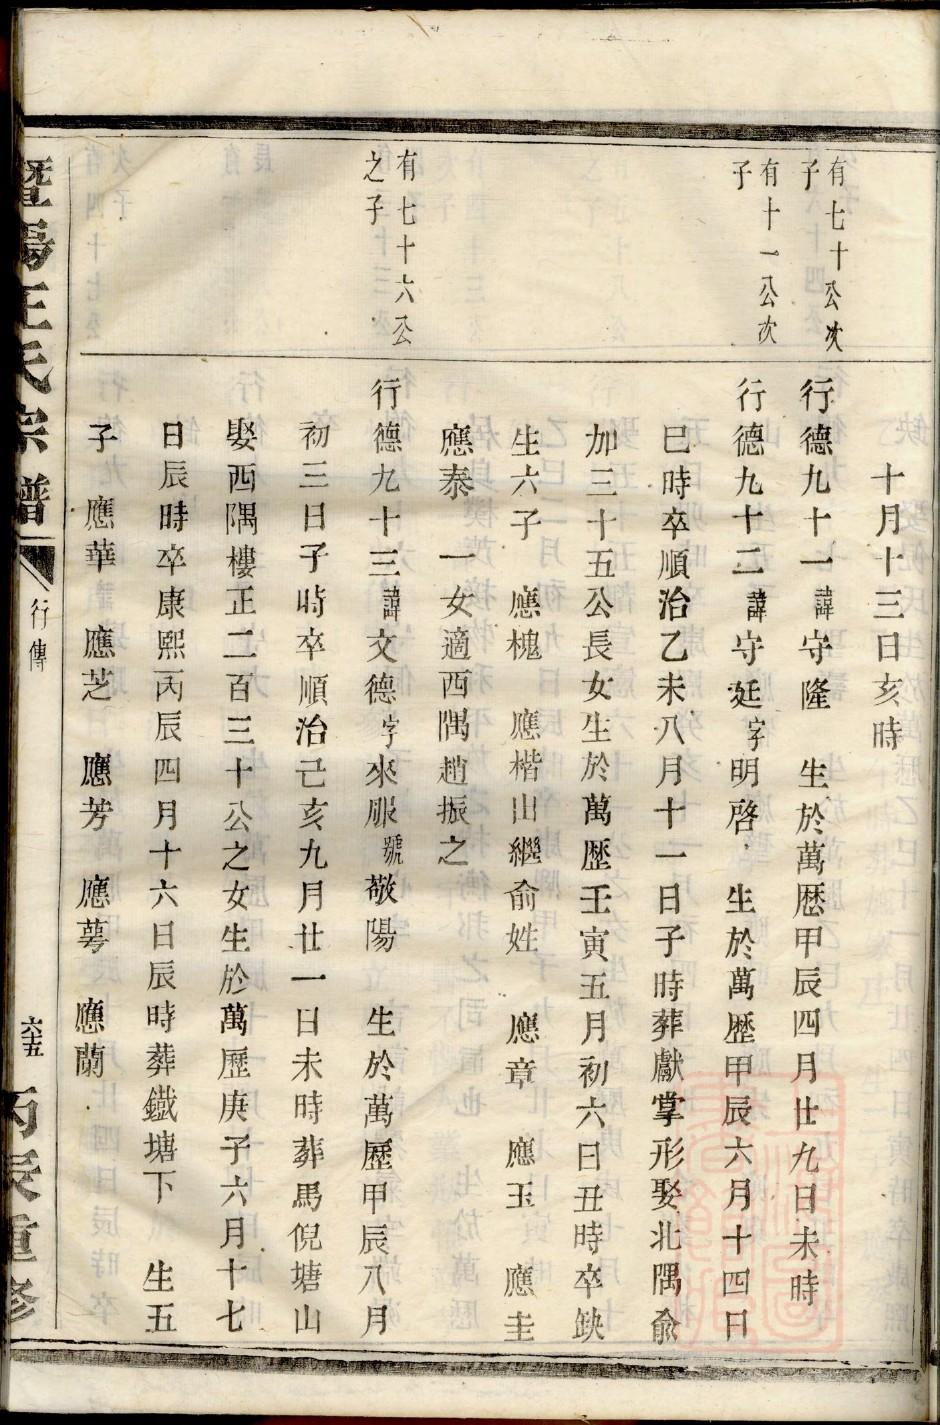 有七十公次
子
有十一公次
子
有七十六公
之子
十月十三日亥時
行德九十一諱守隆　生於萬歷甲辰四月廿九日未時
行德九十二諱守廷字明啓　生於萬歷甲辰六月十四日
巳時卒順治乙未八月十一日子時葬獻掌形娶北隅俞
加三十五公長女生於萬歷壬寅五月初六日丑時卒缺
生六子　應槐　應楷出繼俞姓　應章　應玉　應圭
應泰　一女適西隅趙振之
行德九十三諱文德字來服號敬陽　生於萬歷甲辰八月
初三日子時卒順治己亥九月廿一日未時葬馬倪塘山
娶西隅樓正二百三十公之女生於萬歷庚子六月十七
日辰時卒康熙丙辰四月十六日辰時葬鐵塘下　生五
子　應華　應芝　應芳　應萼　應蘭
暨陽王氏宗譜
行傳
六五
丙辰重修